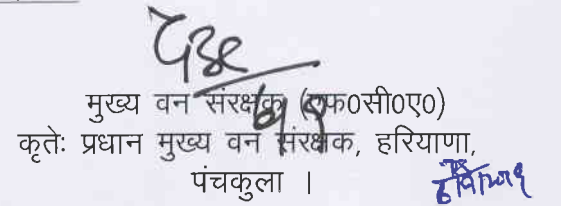 मुख्य वन संरक्षक (एफ0सी0ए0)
कृतेः प्रधान मुख्य वन संरक्षक, हरियाणा,
पंचकुला ।